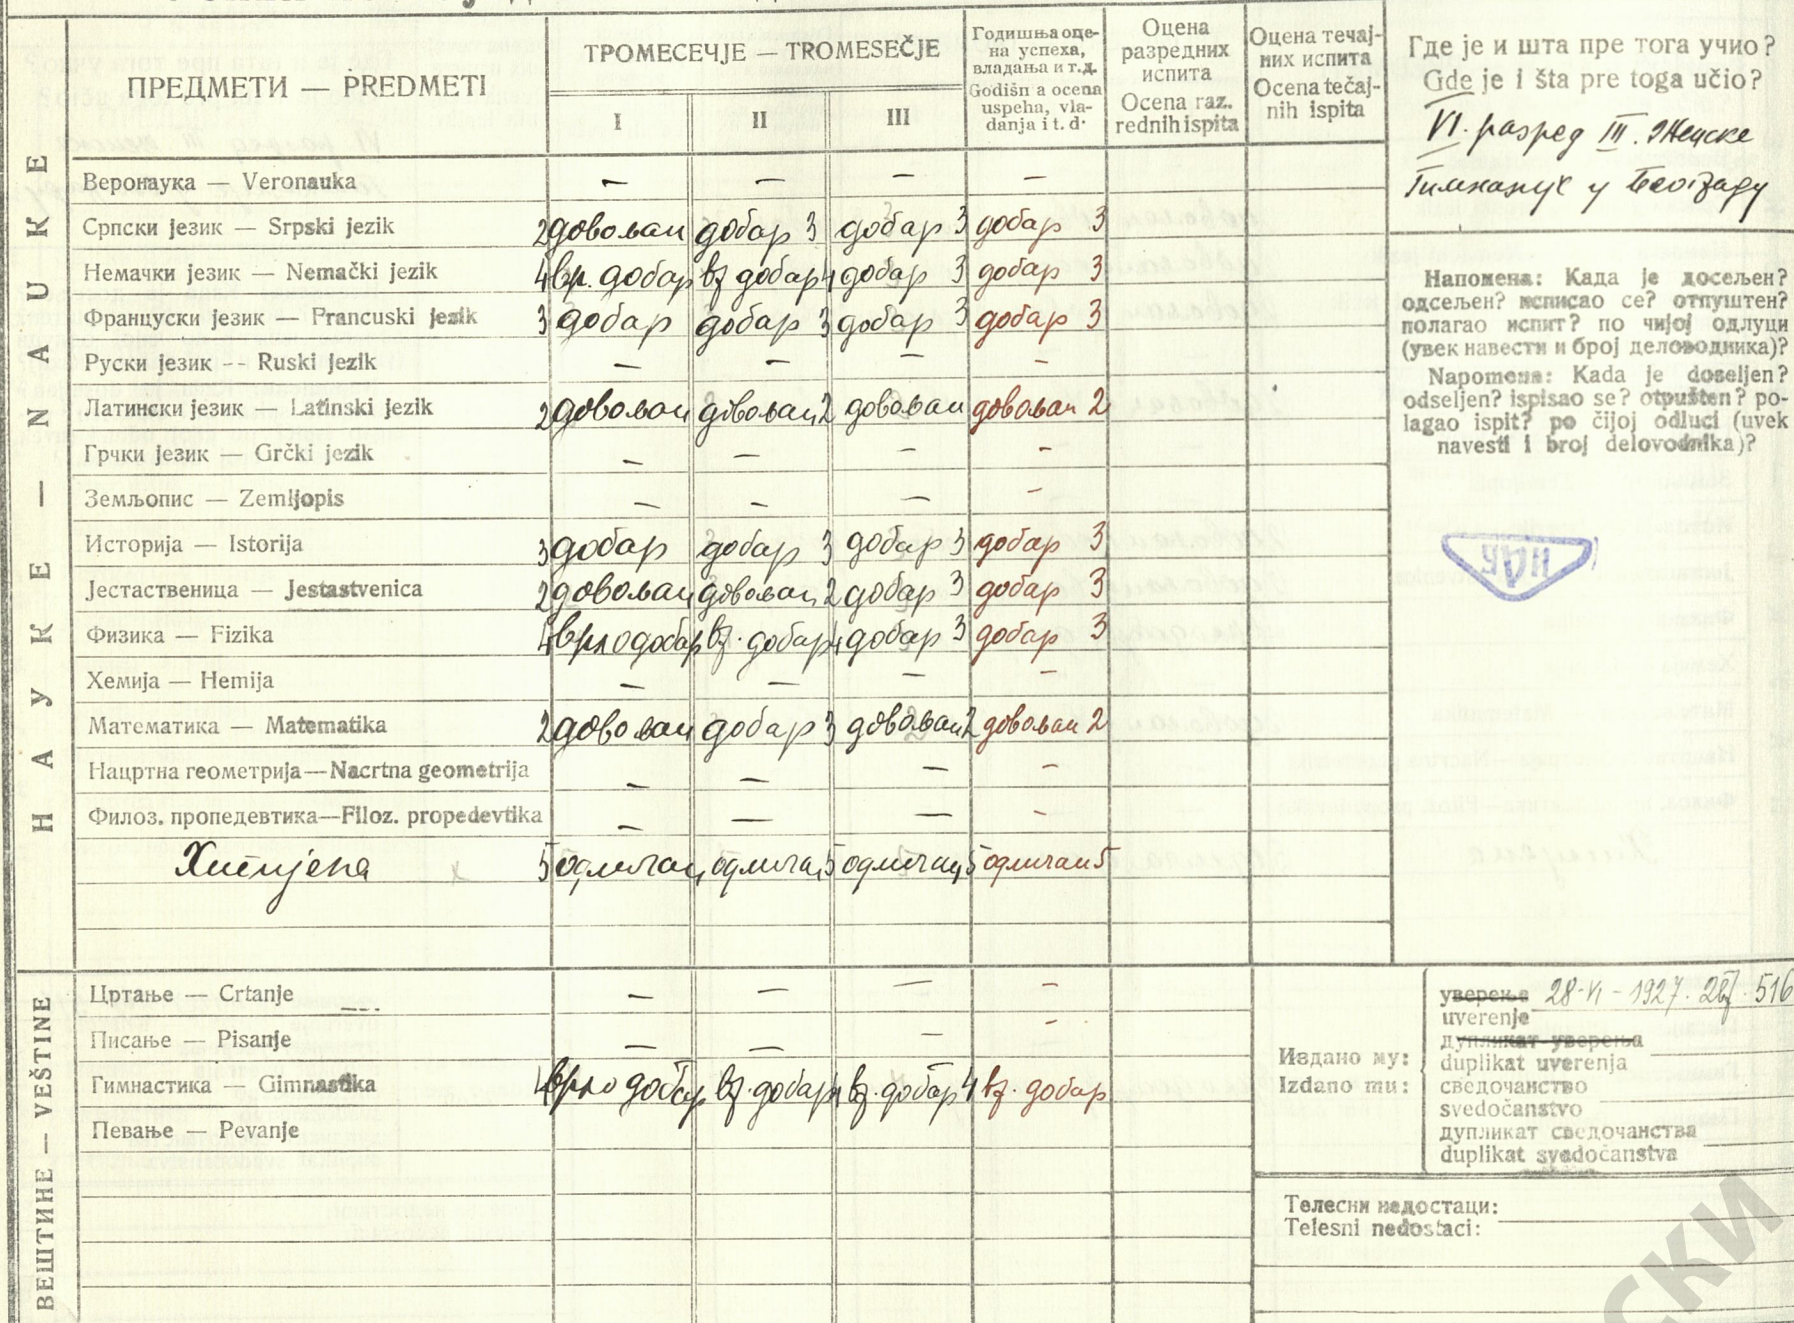 ПРЕДМЕТИ — PREDMETI
ТРОМЕСЕЧЈЕ — TROMESEČJE
I II III
Годишња оце-
на успеха,
владања и т.д.
Godišn a ocena
uspeha, vla-
danja i t. d·
Оцена
разредних
испита
Ocena raz.
rednih ispita
Оцена течај-
них испита
Ocena tečaj-
nih ispita
НАУКЕ — NAUKE
Веронаука — Veronauka — — — —
Српски језик — Srpski jezik 2 довољан добар 3 добар 3 добар 3
Немачки језик — Nemački jezik 4 вр. добар вр добар 4 добар 3 добар 3
Француски језик — Francuski jezik 3 добар добар 3 добар 3 добар 3
Руски језик -- Ruski jezik — — — —
Латински језик — Latinski jezik 2 довољан довољан 2 довољан довољан 2
Грчки језик — Grčki jezik — — — —
Земљопис — Zemljopis — — — —
Историја — Istorija 3 добар добар 3 добар 3 добар 3
Јестаственица — Jestastvenica 2 довољан довољан 2 добар 3 добар 3
Физика — Fizika 4 врло добар вр. добар 4 добар 3 добар 3
Хемија — Hemija — — — —
Математика — Matematika 2 довољан добар 3 довољан 2 довољан 2
Нацртна геометрија—Nacrtna geometrija — — — —
Филоз. пропедевтика—Filoz. propedevtika — — — —
Хигијена 5 одличан одличан 5 одличан 5 одличан 5
ВЕШТИНЕ — VEŠTINE
Цртање — Crtanje — — — —
Писање — Pisanje — — — —
Гимнастика — Gimnastika 4 врло добар вр. добар 4 вр. добар 4 вр. добар
Певање — Pevanje
Где је и шта пре тога учио?
Gde je i šta pre toga učio?
VI. разред III. Женске
Гимназије у Београду
Напомена: Када је досељен?
одсељен? исписао се? отпуштен?
полагао испит? по чијој одлуци
(увек навести и број деловодника)?
Napomena: Kada je doseljen?
odseljen? ispisao se? otpušten? po-
lagao ispit? po čijoj odluci (uvek
navesti i broj delovodnika)?
Издано му:
Izdano mu:
уверење 28-VI-1927. 516
uverenje
дупликат уверења
duplikat uverenja
сведочанство
svedočanstvo
дупликат сведочанства
duplikat svedočanstva
Телесни недостаци:
Telesni nedostaci:
СКИ